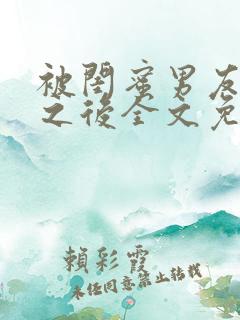 被閨蜜男友
之後全文免
賴彩霞
未经同意禁止转载